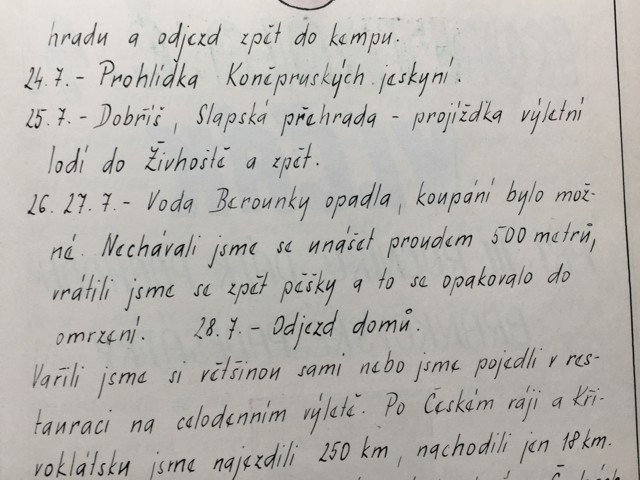 hradu a odjezd zpět do kempu.
24.7. - Prohlídka Koněpruských jeskyní.
25.7. - Dobříš, Slapská přehrada - projížďka výletní
lodí do Živhoště a zpět.
26. 27. 7. - Voda Berounky opadla, koupání bylo mož-
né. Nechávali jsme se unášet proudem 500 metrů,
vrátili jsme se zpět pěšky a to se opakovalo do
omrzení. 28.7. - Odjezd domů.
Vařili jsme si většinou sami nebo jsme pojedli v res-
tauraci na celodenním výletě. Po Českém ráji a Kři-
voklátsku jsme najezdili 250 km, nachodili jen 18 km.